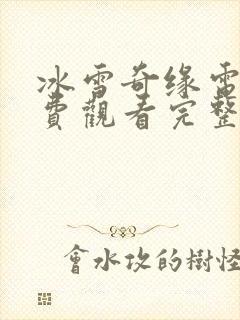 冰雪奇缘電
費觀看完整
會水攻的樹怪